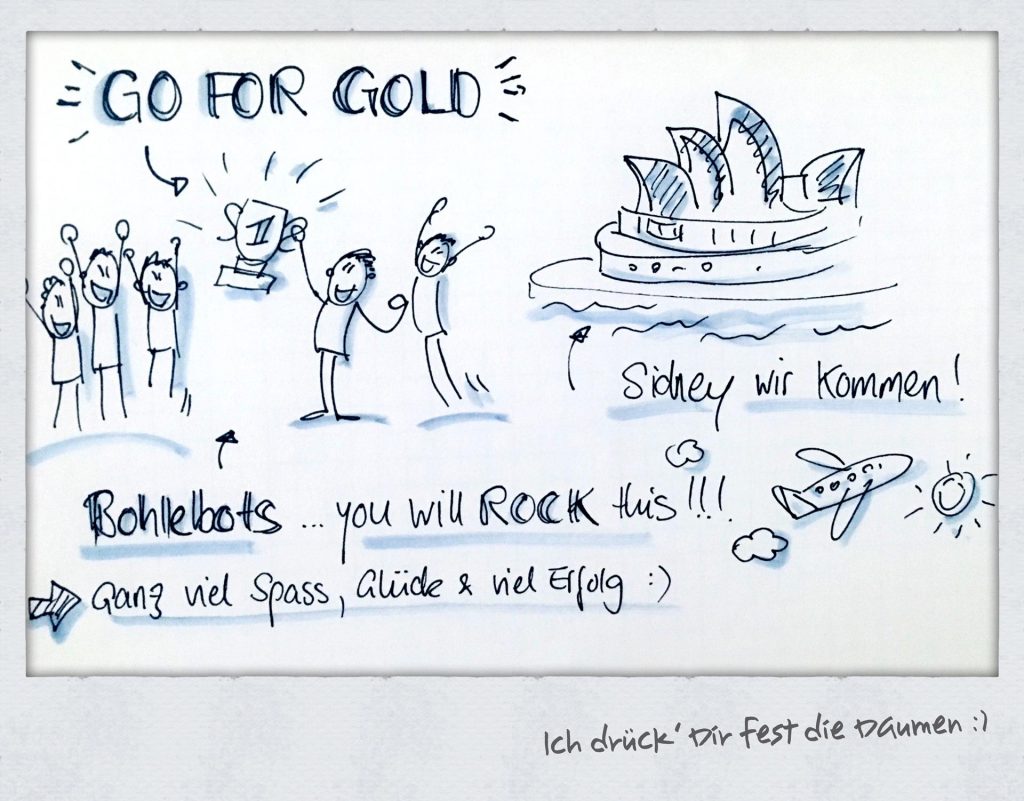 GO FOR GOLD
1
Sidney wir kommen!
Bohlebots ... you will ROCK this!!!
Ganz viel Spass, Glück & viel Erfolg :)
Ich drück' Dir fest die Daumen :)